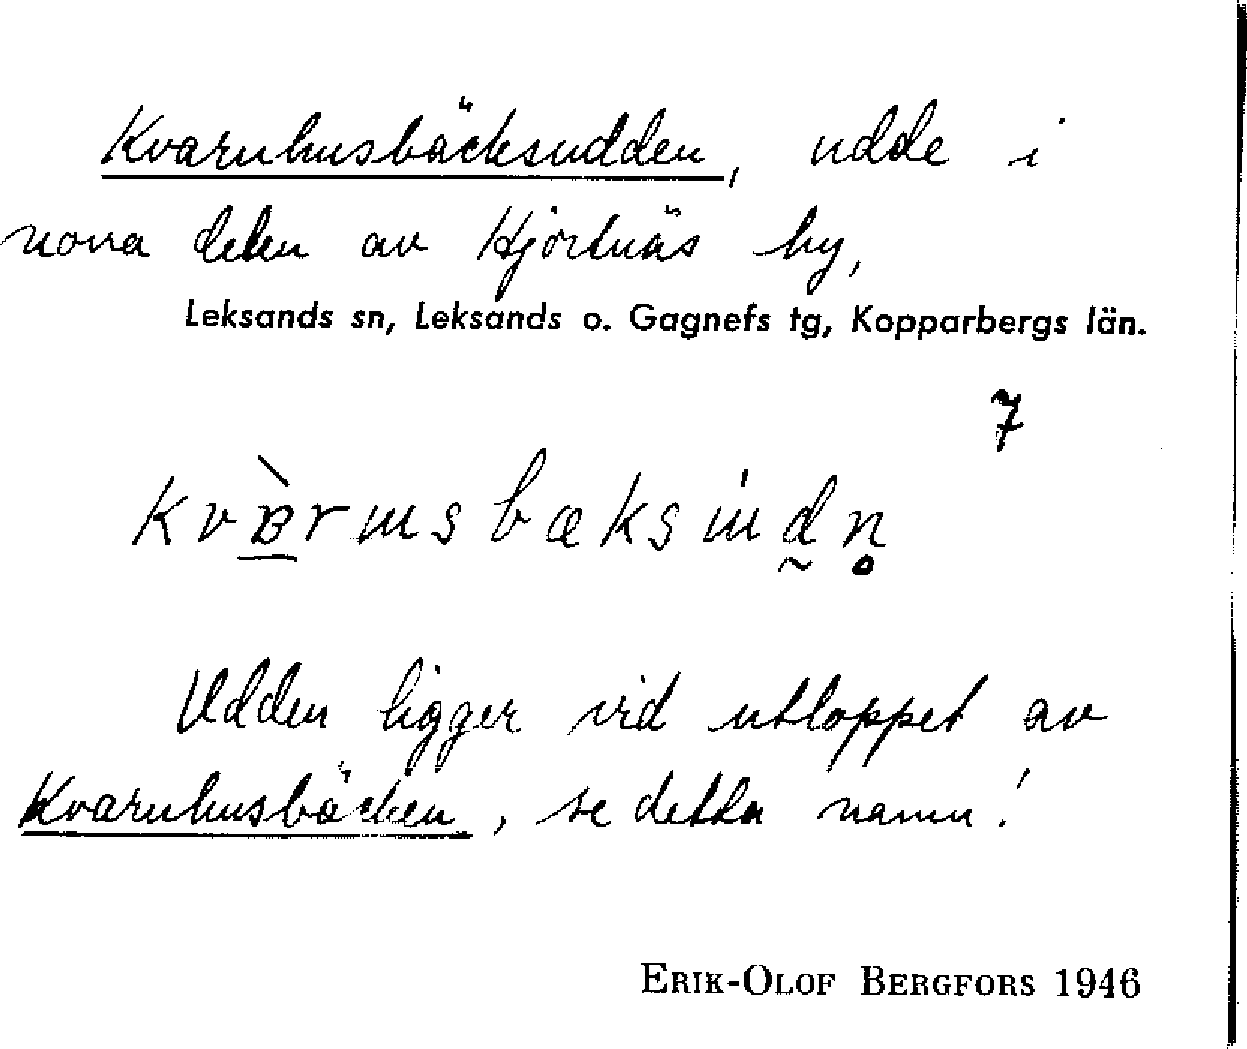 Kvarnhusbäcksudden, udde i
norra delen av Hjortnäs by,
Leksands sn, Leksands o. Gagnefs tg, Kopparbergs län.
7
Udden ligger vid utloppet av
Kvarnhusbäcken, se detta namn!
ERIK-OLOF BERGFORS 1946